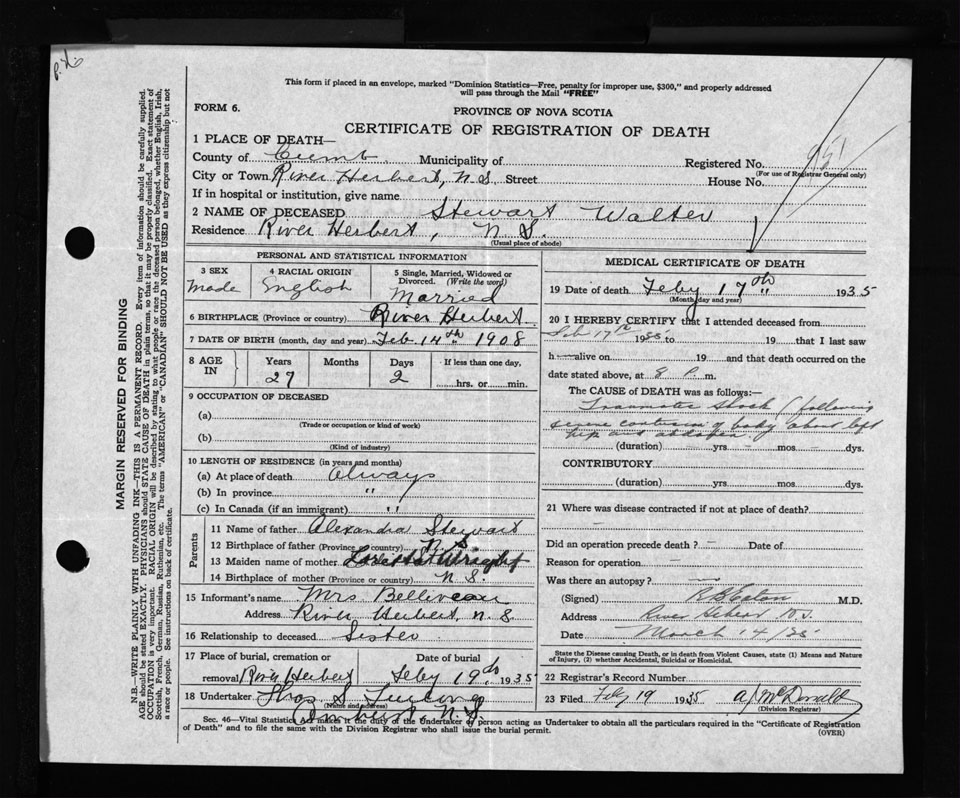 This form if placed in an envelope, marked "Dominion Statistics—Free, penalty for improper use, $300," and properly addressed
will pass through the Mail "FREE"
FORM 6.
PROVINCE OF NOVA SCOTIA
CERTIFICATE OF REGISTRATION OF DEATH
1 PLACE OF DEATH—
County of Cumb. Municipality of Registered No. 951
City or Town River Herbert, N.S. Street House No. (For use of Registrar General only)
If in hospital or institution, give name
2 NAME OF DECEASED Stewart Walter
Residence River Herbert, N S.
(Usual place of abode)
PERSONAL AND STATISTICAL INFORMATION
3 SEX 4 RACIAL ORIGIN 5 Single, Married, Widowed or
Divorced. (Write the word)
Made English Married
6 BIRTHPLACE (Province or country) River Herbert
7 DATE OF BIRTH (month, day and year) Feb. 14th 1908
8 AGE IN Years Months Days If less than one day,
27 2 hrs. or min.
9 OCCUPATION OF DECEASED
(a)
(Trade or occupation or kind of work)
(b)
(Kind of industry)
10 LENGTH OF RESIDENCE (in years and months)
(a) At place of death Always
(b) In province "
(c) In Canada (if an immigrant) "
Parents
11 Name of father Alexandra Stewart
12 Birthplace of father (Province or country) N S.
13 Maiden name of mother Wright
14 Birthplace of mother (Province or country) N S.
15 Informant's name Mrs Belliveau
Address River Herbert, N.S
16 Relationship to deceased Sister
17 Place of burial, cremation or Date of burial
removal River Herbert Feby 19th 1935
18 Undertaker Thos S
(Name and address)
N. S.
MEDICAL CERTIFICATE OF DEATH
19 Date of death Feby 17th 1935
(Month, day and year)
20 I HEREBY CERTIFY that I attended deceased from
Feb 17th 1935 to 19 that I last saw
h alive on 19 and that death occurred on
date stated above, at 8 P. m.
The CAUSE OF DEATH was as follows:
Traumatic Shock (following
severe contusion of body about left
hip and abdomen.
(duration) yrs mos dys.
CONTRIBUTORY
(duration) yrs. mos. dys.
21 Where was disease contracted if not at place of death?
Did an operation precede death? — Date of
Reason for operation
Was there an autopsy? —
(Signed) M.D.
Address River Hebert N.S.
Date March 14/35
State the Disease causing Death, or in death from Violent Causes, state (1) Means and
Nature of Injury, (2) whether Accidental, Suicidal or Homicidal.
22 Registrar's Record Number
23 Filed Feby 19 1935 A J McDonald
(Division Registrar)
Sec. 46—Vital Statistics Act makes it the duty of the Undertaker or person acting as Undertaker to obtain all the particulars required in the "Certificate of Registration
of Death" and to file the same with the Division Registrar who shall issue the burial permit. (OVER)
MARGIN RESERVED FOR BINDING
N.B.—WRITE PLAINLY WITH UNFADING INK—THIS IS A PERMANENT RECORD. Every item of information should be carefully supplied.
AGE should be stated EXACTLY. PHYSICIANS should STATE CAUSE OF DEATH in plain terms, so that it may be properly classified. Exact statement of
OCCUPATION is very important. RACIAL ORIGIN will be described by stating to what people or race the deceased person belonged, whether English, Irish,
Scottish, French, German, Russian, Ruthenian, etc. The terms "AMERICAN" or "CANADIAN" SHOULD NOT BE USED as they express citizenship but not
a race or people. See instructions on back of certificate.